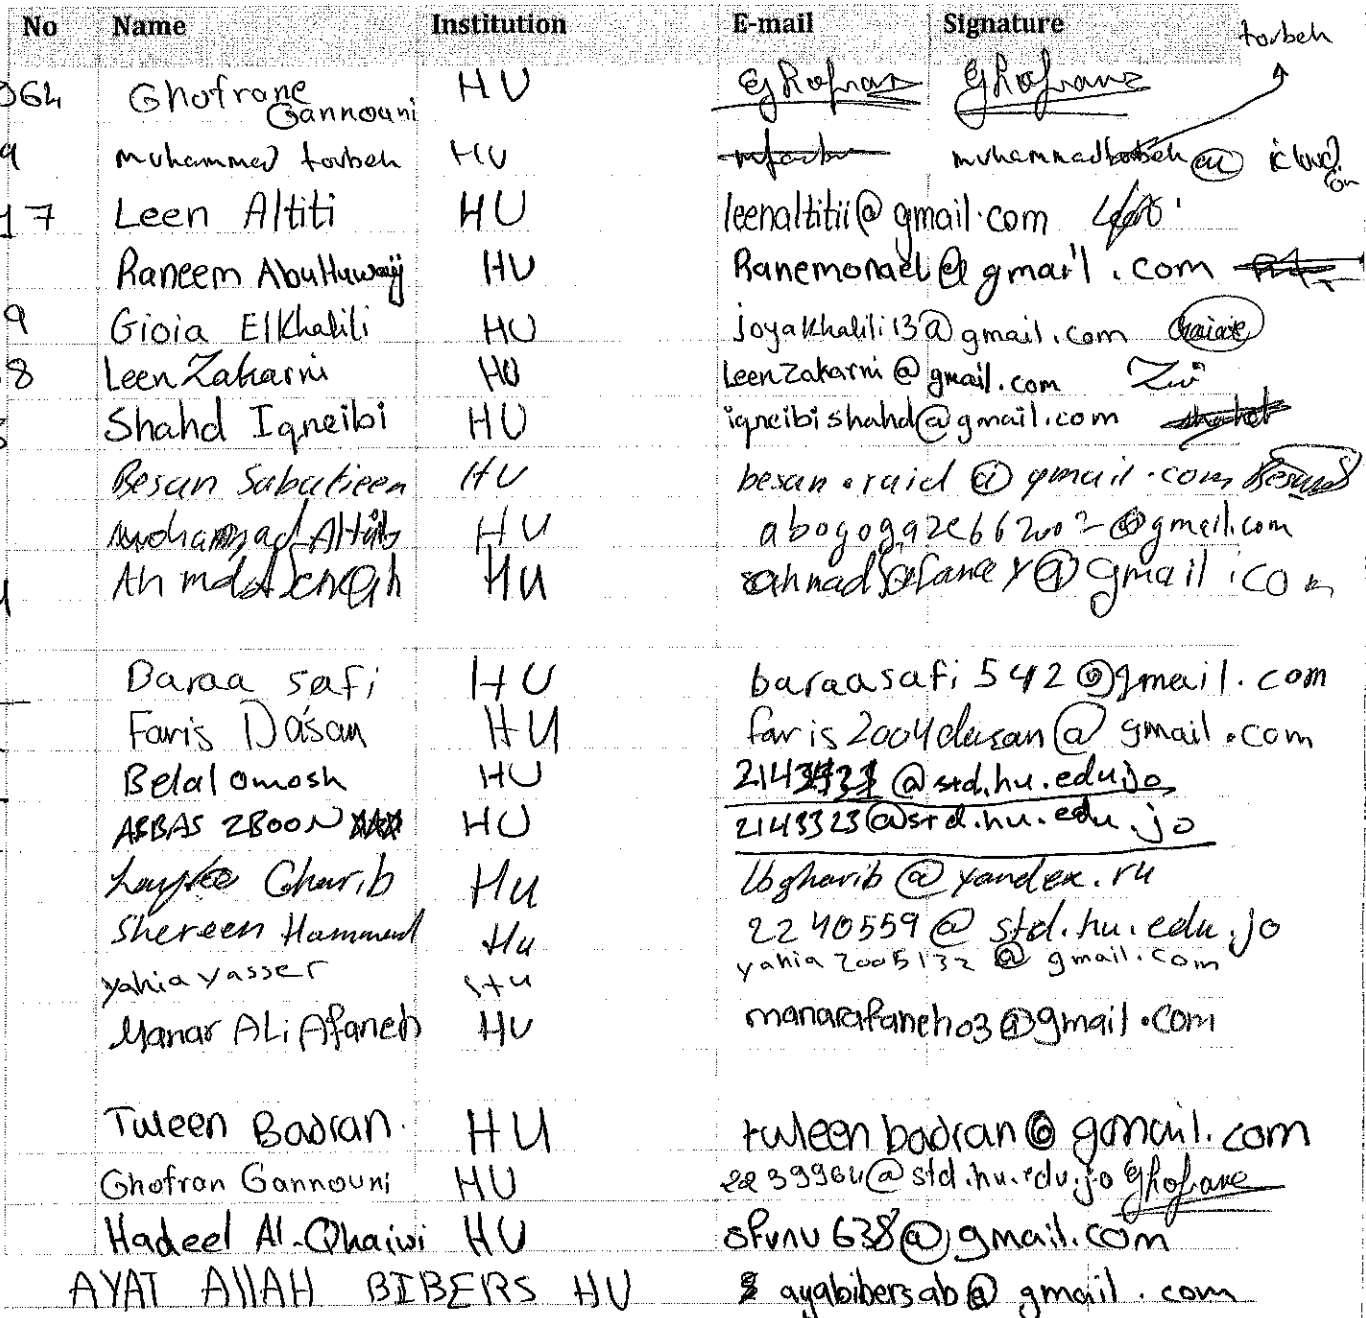 No Name Institution E-mail Signature
torbeh
064 Ghofrane Gannouni HU Ghofrane Ghofrane
9 muhammad torbeh HU muhammadtorbeh@icloud.com
17 Leen Altiti HU leenaltitii@gmail.com
Raneem AbuHuwaij HU @gmail.com
9 Gioia ElKhalili HU joyakhalili13@gmail.com
8 Leen Zakarni HU leenzakarni@gmail.com
Shahd Iqneibi HU iqneibishahd@gmail.com shahd
Besan Sabateen HU besan.raid@gmail.com Besan
HU @gmail.com
HU @gmail.com
Baraa Safi HU baraasafi542@gmail.com
Faris Dasan HU faris2004dasan@gmail.com
Belal omosh HU @std.hu.edu.jo
ABBAS HU 2143323@std.hu.edu.jo
Gharib HU lbgharib@yandex.ru
Shereen Hammad HU 2240559@std.hu.edu.jo
yahia yasser HU yahia2005132@gmail.com
Manar ALi Afaneh HU manarafaneh03@gmail.com
Tuleen Badran HU tuleenbadran@gmail.com
Ghofran Gannouni HU 2239964@std.hu.edu.jo Ghofrane
Hadeel Al-Qhaiwi HU sfvnu638@gmail.com
AYAT AllAH BIBERS HU ayabibersab@gmail.com